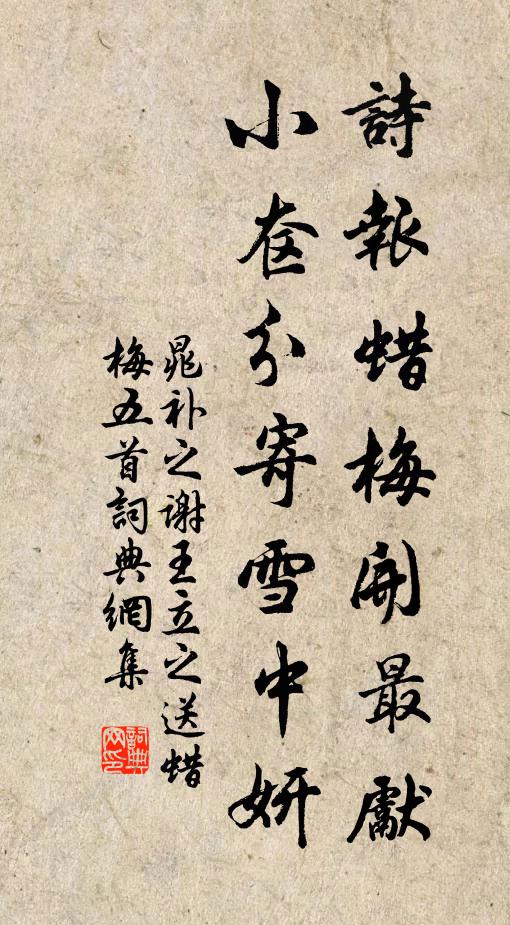 詩報蜡梅開最獻
小奁分寄雪中妍
晁补之謝王立之送蜡
梅五首詞典網集
詞典
网印